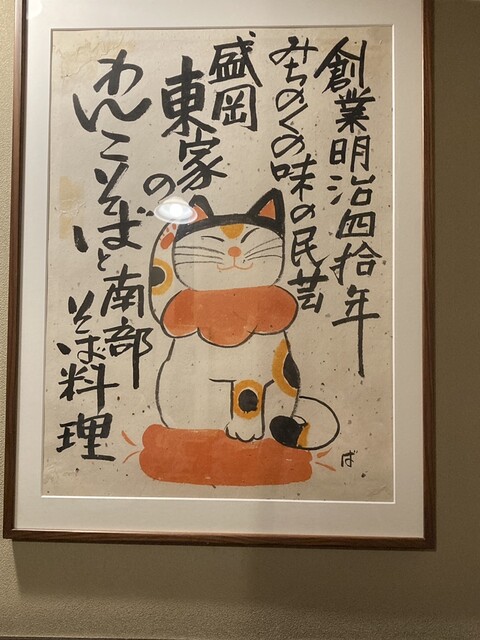 創業明治四拾年
みちのくの味の民芸
盛岡
東家の
わんこそばと南部
そば料理
ば